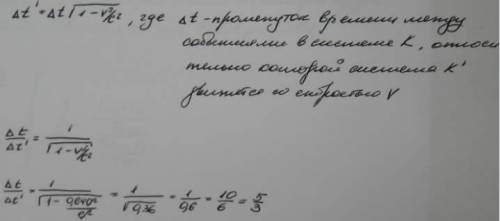 Δt' = Δt√(1-v²/c²), где Δt - промежуток времени между
событиями в системе K, относи
тельно которой система K'
движется со скоростью V
Δt/Δt' = 1/√(1-v²/c²)
Δt/Δt' = 1/√(1-0,64c²/c²) = 1/√0,36 = 1/0,6 = 10/6 = 5/3